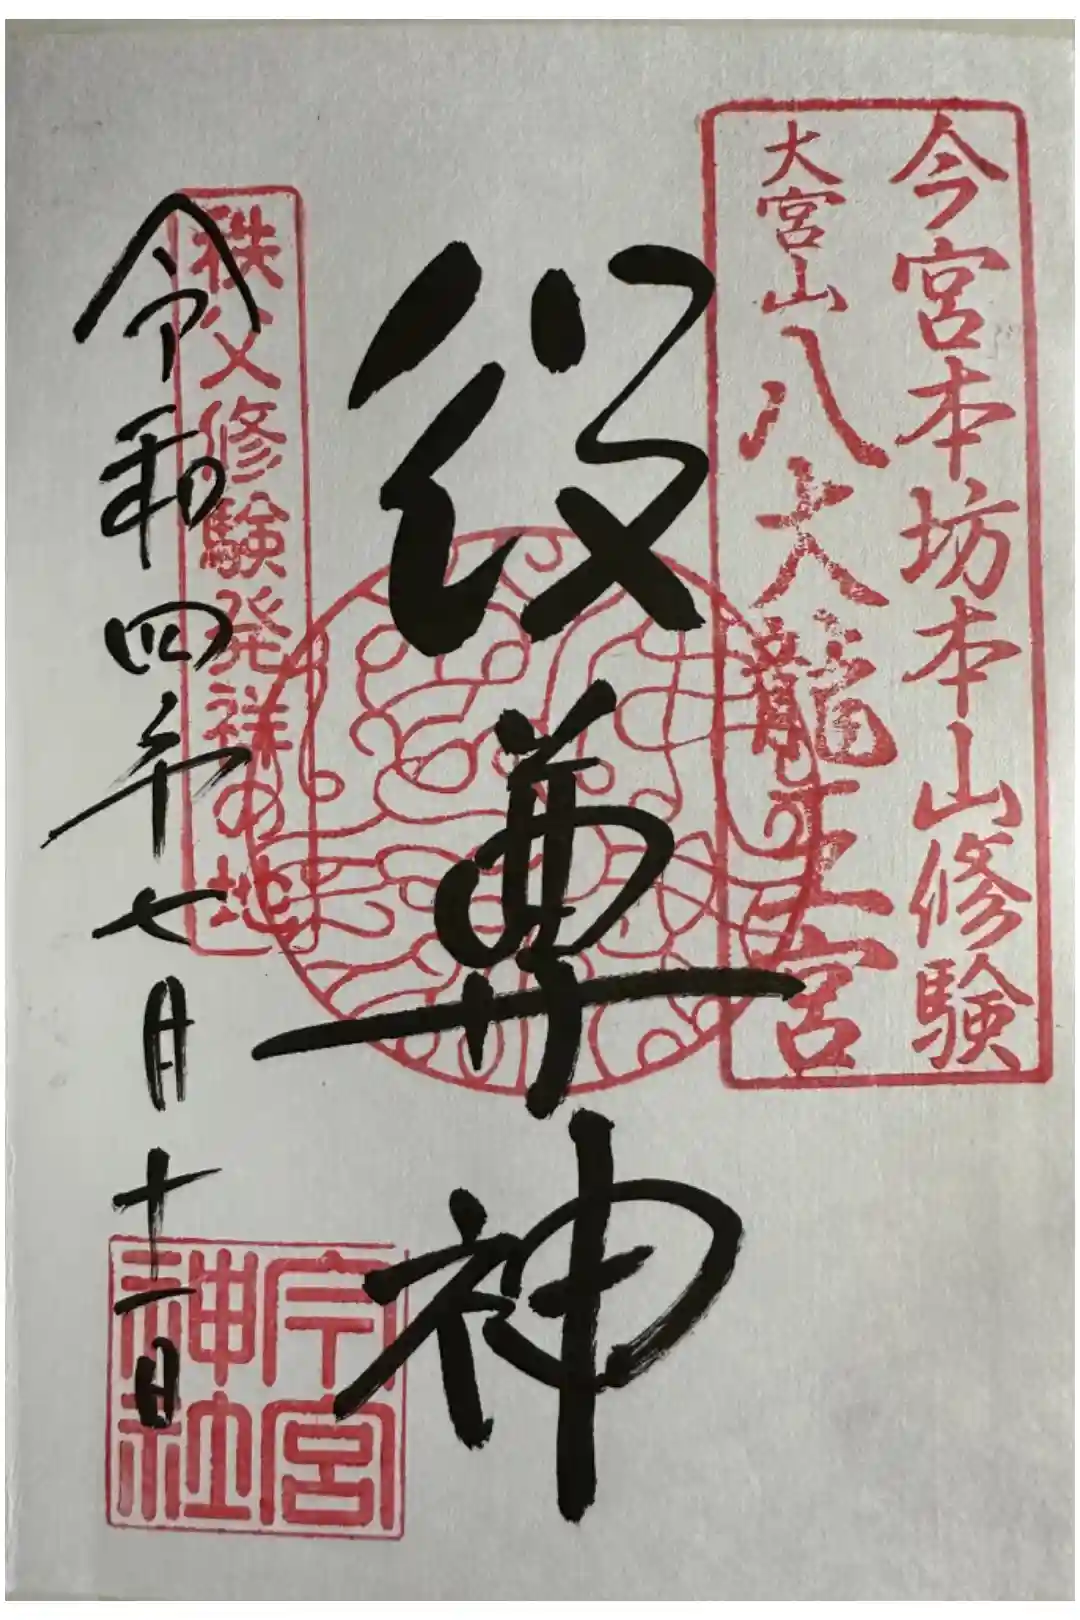 今宮本坊本山修験
大宮山八大龍王宮
役尊神
秩父修験発祥の地
令和四年七月十二日
今宮
神社